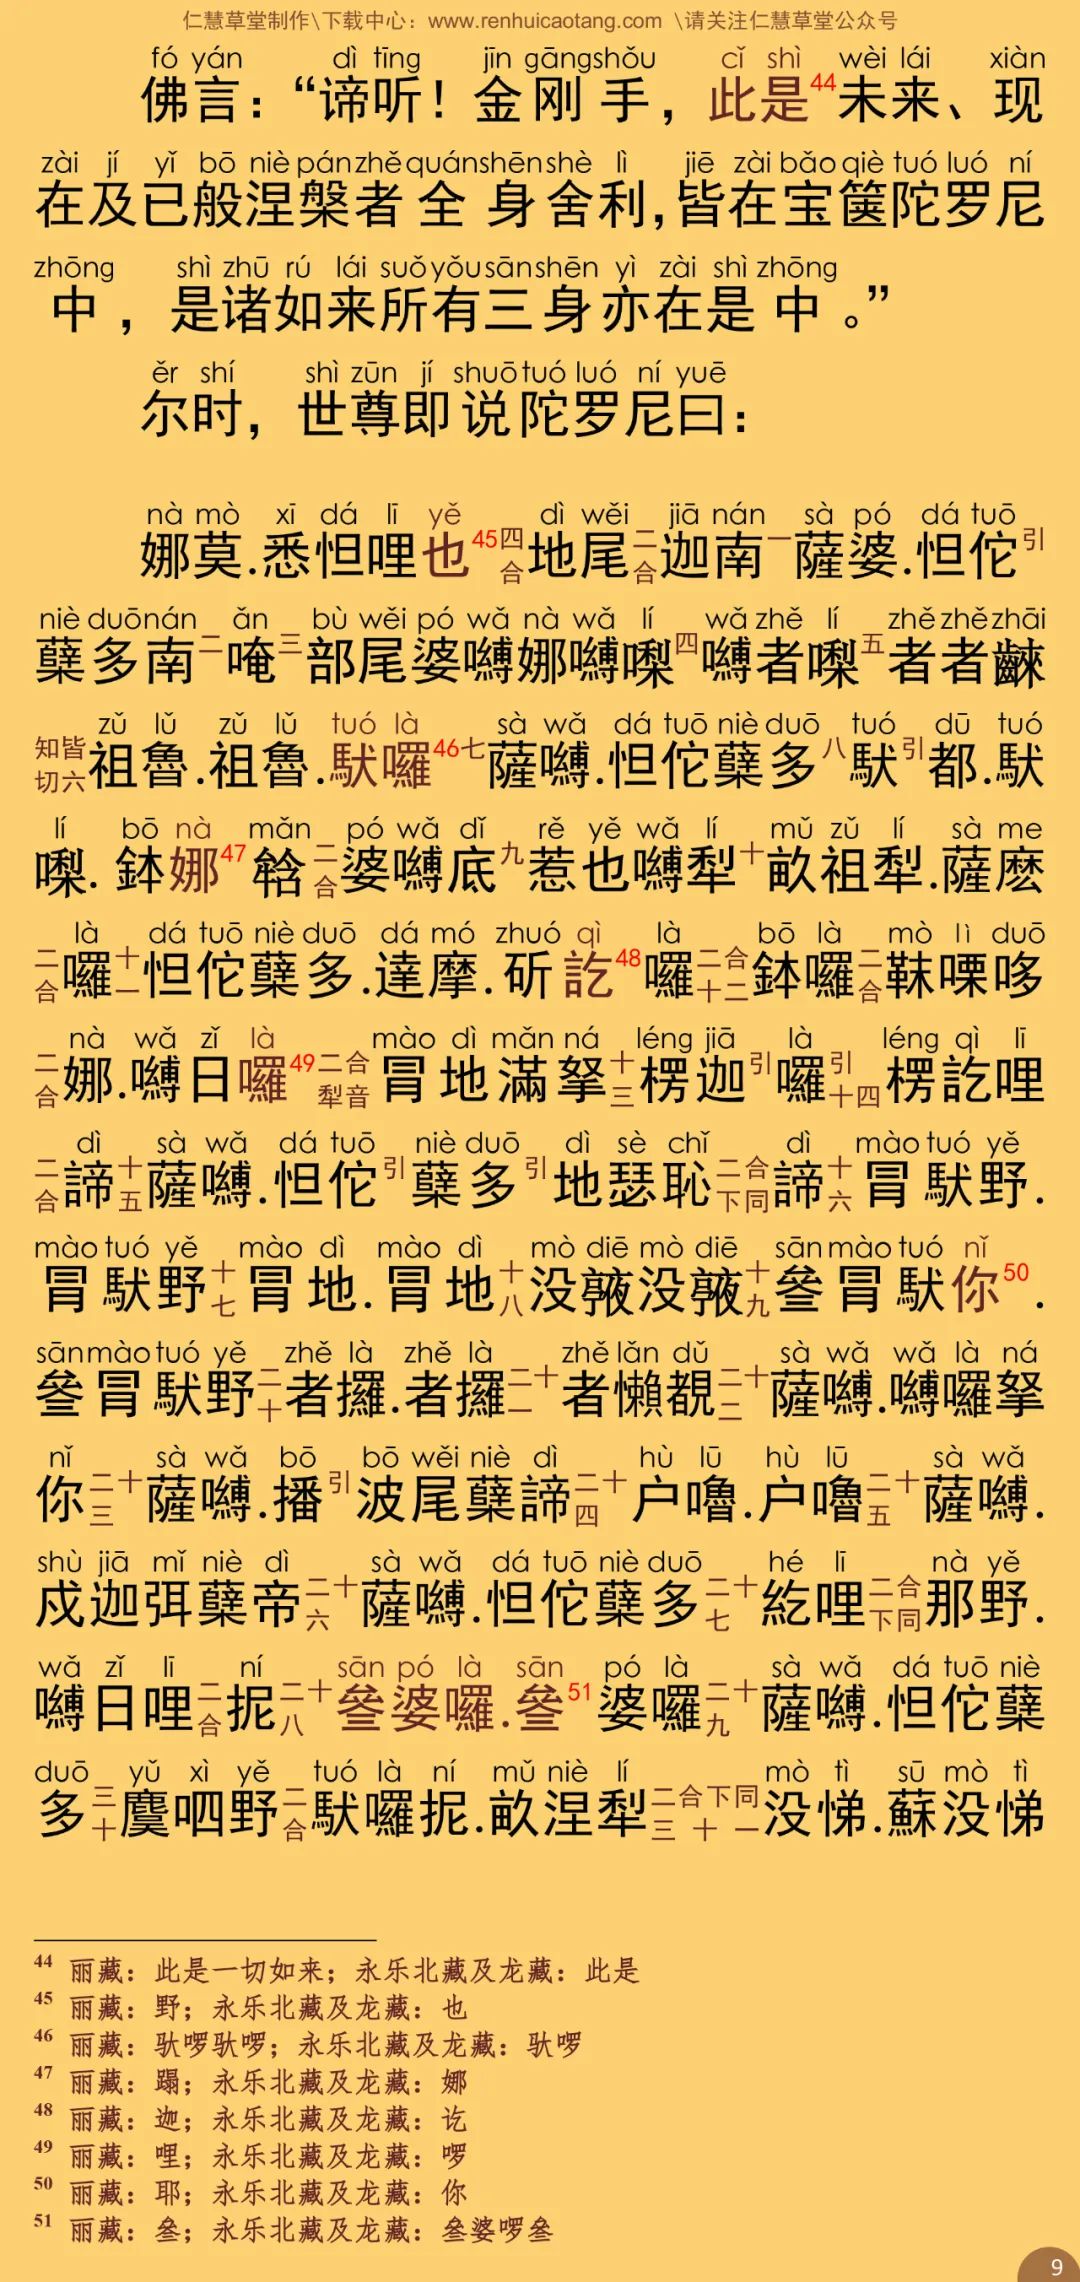 仁慧草堂制作\下载中心：www.renhuicaotang.com \请关注仁慧草堂公众号
fó yán dì tīng jīn gāngshǒu cǐ shì wèi lái xiàn
佛言：“谛听！金刚手，此是44未来、现
zài jí yǐ bō niè pánzhě quánshēnshè lì jiē zài bǎo qiè tuó luó ní
在及已般涅槃者全身舍利，皆在宝箧陀罗尼
zhōng shì zhū rú lái suǒ yǒu sānshēn yì zài shì zhōng
中，是诸如来所有三身亦在是中。”
ěr shí shì zūn jí shuō tuó luó ní yuē
尔时，世尊即说陀罗尼曰：
nà mò xī dá lī yě dì wěi jiā nán sà pó dá tuō
娜莫.悉怛哩也45四合地尾二合迦南一薩婆.怛佗引
niè duō nán ǎn bù wěi pó wǎ nà wǎ lí wǎ zhě lí zhě zhě zhāi
蘖多南二唵三部尾婆嚩娜嚩㗚四嚩者㗚五者者齽
zǔ lǔ zǔ lǔ tuó là sà wǎ dá tuō niè duō tuó dū tuó
知皆切六祖魯.祖魯.馱囉46七薩嚩.怛佗蘖多八馱引都.馱
lí bō nà mǎn pó wǎ dǐ rě yě wǎ lí mǔ zǔ lí sà me
㗚.鉢娜47䭡二合婆嚩底九惹也嚩犁十畝祖犁.薩麽
là dá tuō niè duō dá mó zhuó qì là bō là mò lì duō
二合囉十一怛佗蘖多.達摩.斫訖48囉二合十二鉢囉二合靺㗚哆
nà wǎ zǐ là mào dì mǎn ná léng jiā là léng qì lī
二合娜.嚩日囉49二合犁音冐地滿拏十三楞迦引囉引十四楞訖哩
dì sà wǎ dá tuō niè duō dì sè chǐ dì mào tuó yě
二合諦十五薩嚩.怛佗引蘖多引地瑟恥二合下同諦十六冐馱野.
mào tuó yě mào dì mào dì mò diē mò diē sān mào tuó nǐ
冐馱野十七冐地.冐地十八没㘑没㘑十九叄冐馱你50.
sān mào tuó yě zhě là zhě là zhě lǎn dǔ sà wǎ wǎ là ná
叄冐馱野二十者攞.者攞二十一者懶覩二十二薩嚩.嚩囉拏
nǐ sà wǎ bō bō wěi niè dì hù lū hù lū sà wǎ
你二十三薩嚩.播引波尾蘖諦二十四户嚕.户嚕二十五薩嚩.
shù jiā mǐ niè dì sà wǎ dá tuō niè duō hé lī nà yě
戍迦弭蘖帝二十六薩嚩.怛佗蘖多二十七紇哩二合下同那野.
wǎ zǐ lī ní sān pó là sān pó là sà wǎ dá tuō niè
嚩日哩二合抳二十八叄婆囉.叄51婆囉二十九薩嚩.怛佗蘖
duō yǔ xì yě tuó là ní mǔ niè lí mò tì sū mò tì
多三十麌呬野二合馱囉抳.畝涅犁二合下同三十一没悌.蘇没悌
44 丽藏：此是一切如来；永乐北藏及龙藏：此是
45 丽藏：野；永乐北藏及龙藏：也
46 丽藏：驮啰驮啰；永乐北藏及龙藏：驮啰
47 丽藏：蹋；永乐北藏及龙藏：娜
48 丽藏：迦；永乐北藏及龙藏：讫
49 丽藏：哩；永乐北藏及龙藏：啰
50 丽藏：耶；永乐北藏及龙藏：你
51 丽藏：叄；永乐北藏及龙藏：叄婆啰叄
9